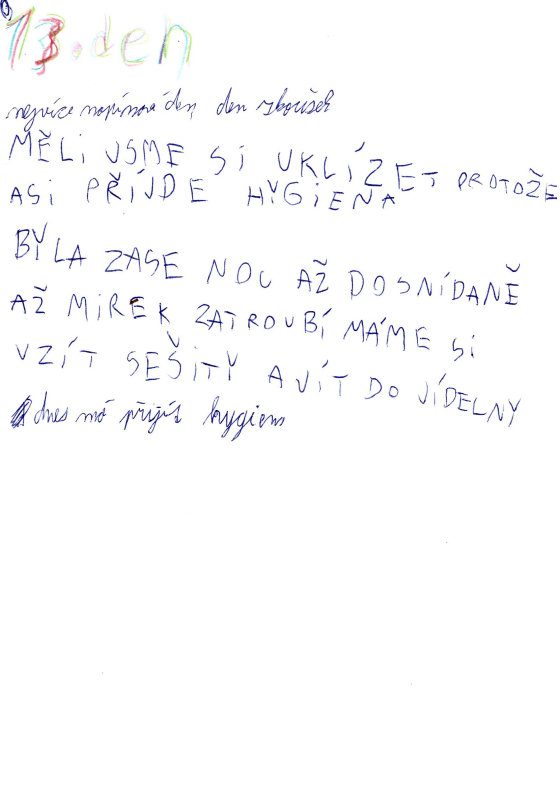 13. den
nejvíce napínavá den, den zkoušek
MĚLi JSME Si UKLÍZET PROTOŽE
ASi PŘÍJDE HYGiENA
BYLA ZASE NOC AŽ DOSNÍDANĚ
AŽ MiREK ZATROUBÍ MÁME Si
VZÍT SEŠiTY A JÍT DO JÍDELNY
dnes má přijít hygiena